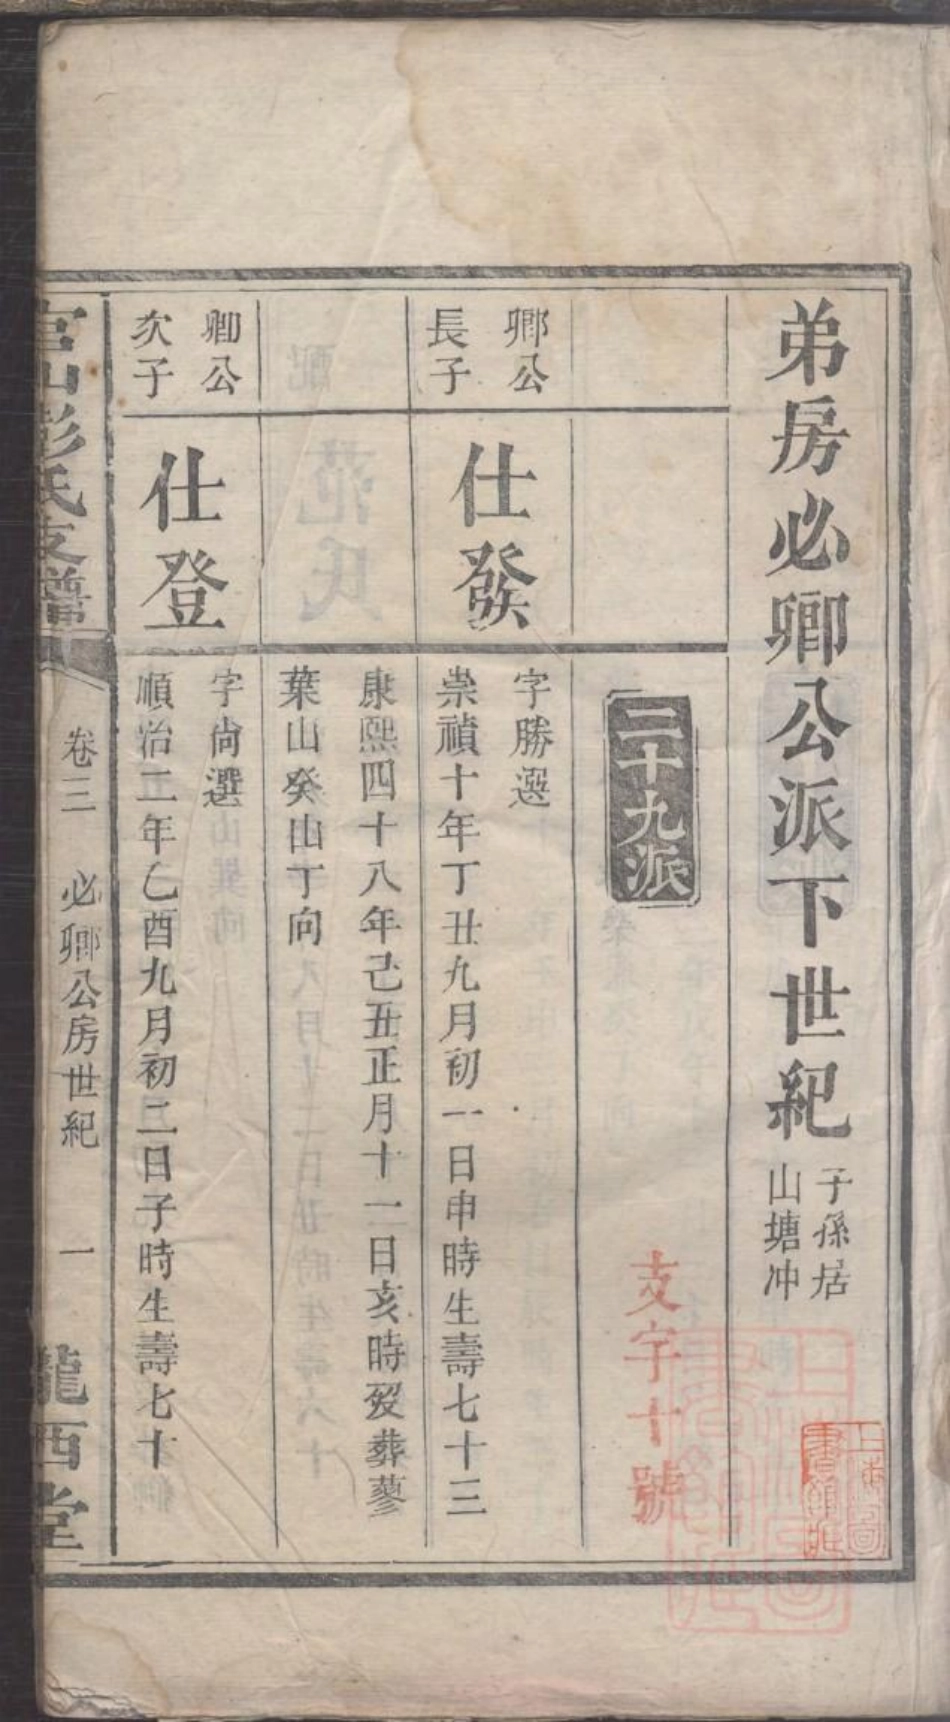 弟房必卿公派下世紀
子孫居
山塘冲
二十九派
支字十號
卿公
長子
仕發
字勝選
崇禎十年丁丑九月初一日申時生壽七十三
康熙四十八年己丑正月十二日亥時歿葬蓼
葉山癸山丁向
卿公
次子
仕登
字尙選
順治二年乙酉九月初二日子時生壽七十
官山彭氏支譜
卷三
必卿公房世紀
一
隴西堂